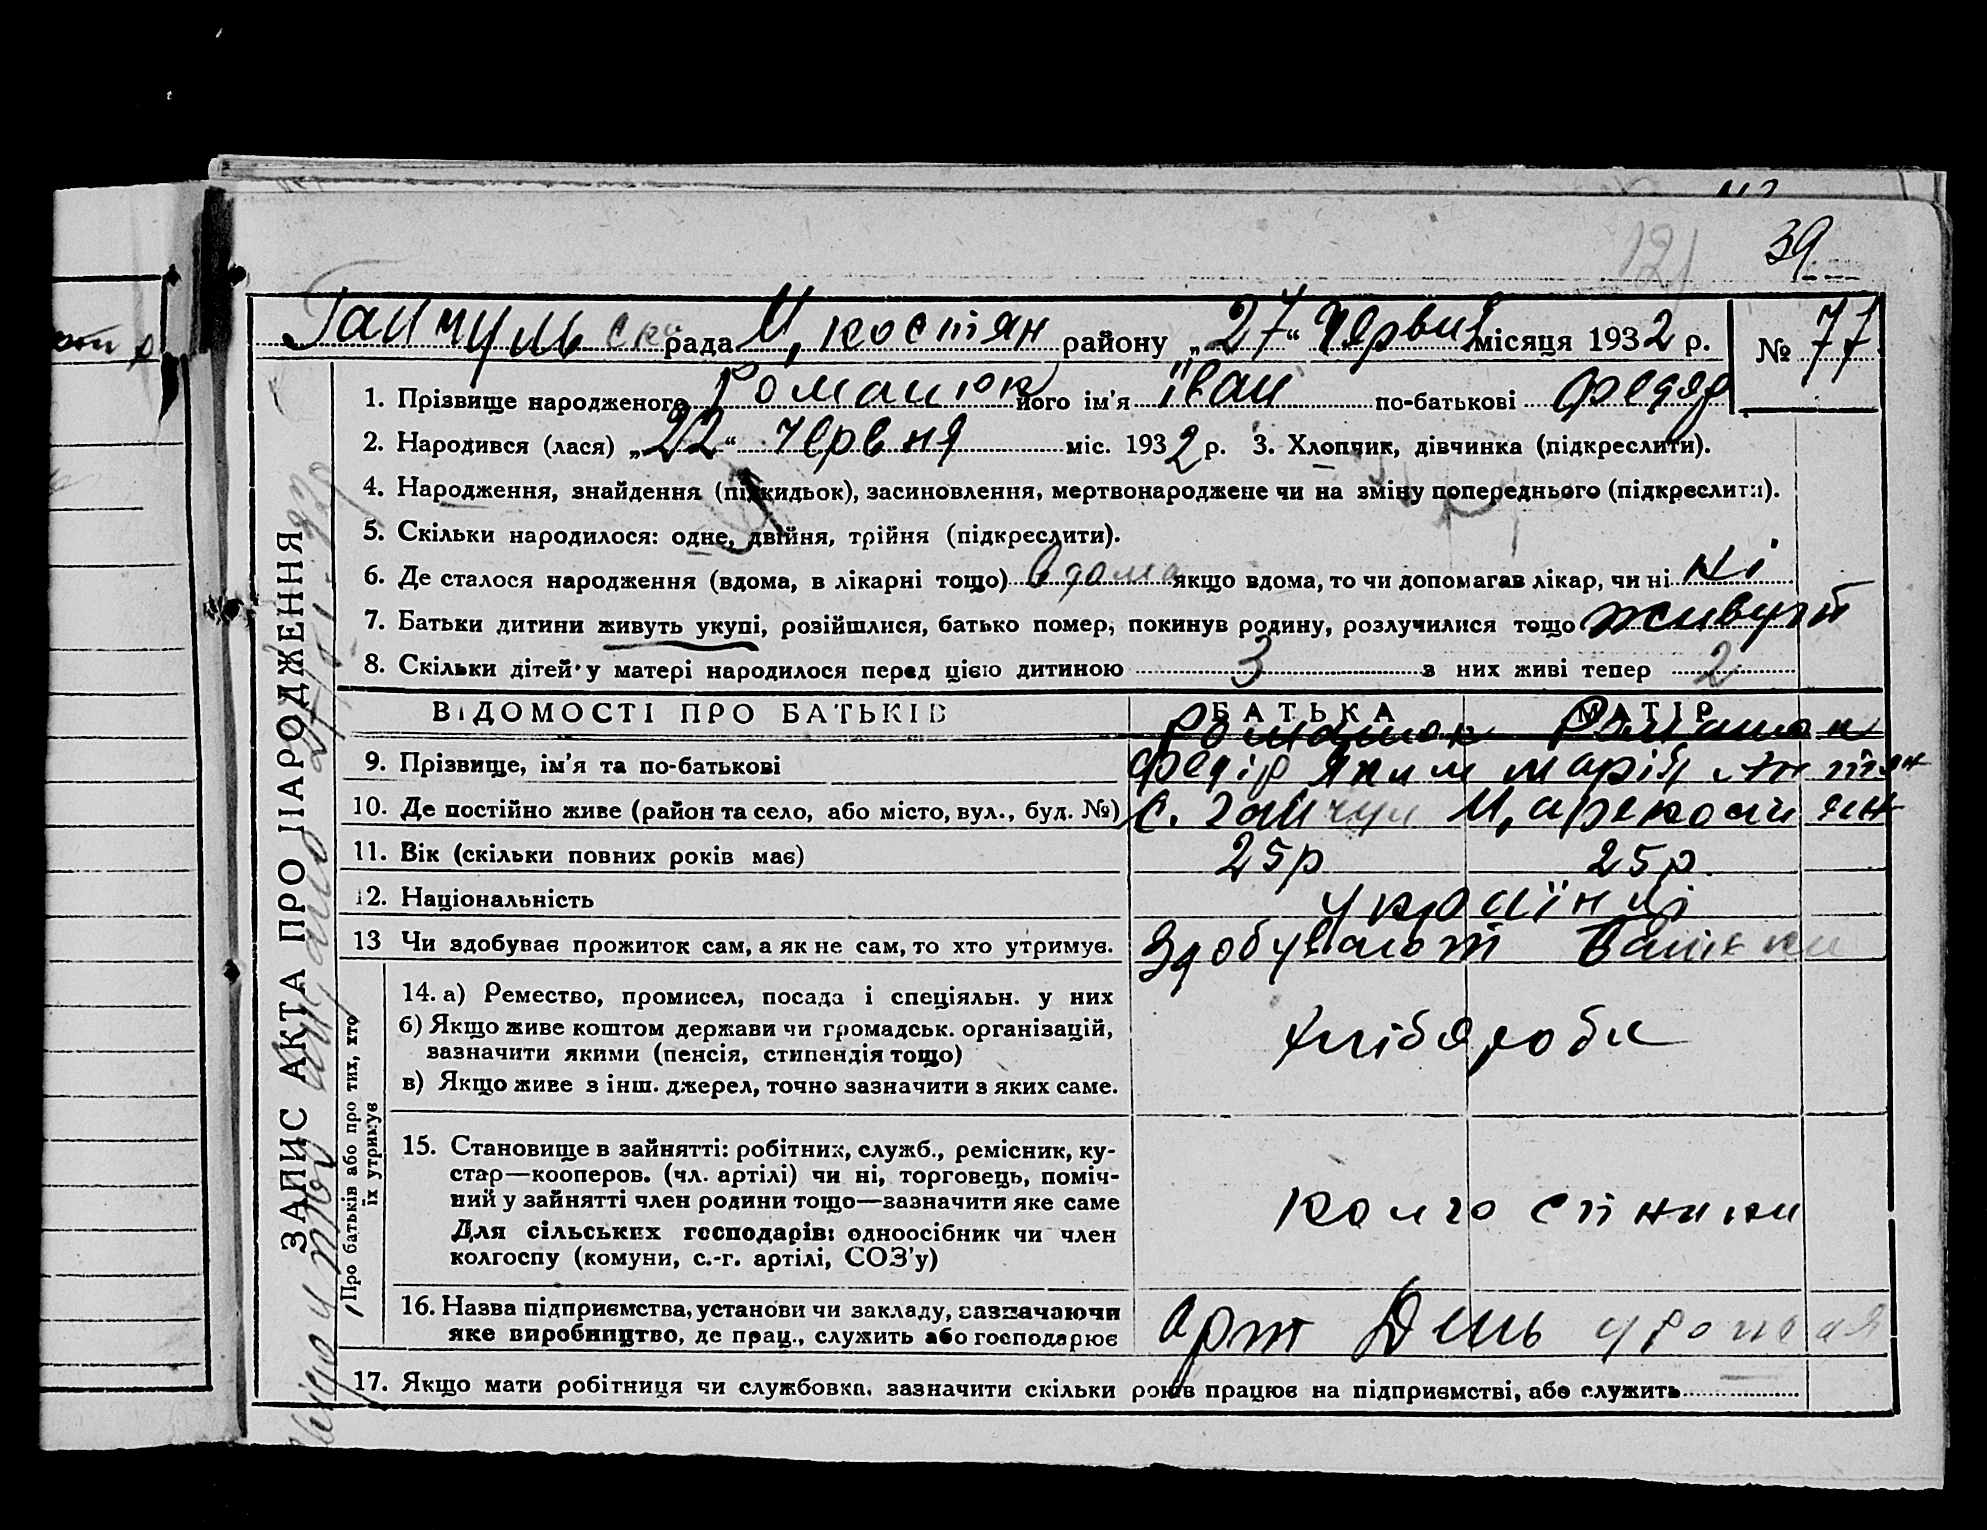 39
121
Гайчульск рада М, костян району „27“ червня місяця 1932 р. № 77
1. Прізвище народженого Романюк його ім'я Іван по-батькові Федор
2. Народився (лася) „22“ червня міс. 1932 р. 3. Хлопчик, дівчинка (підкреслити).
4. Народження, знайдення (підкидьок), засиновлення, мертвонароджене чи на зміну попереднього (підкреслити).
5. Скільки народилося: одне, двійня, трійня (підкреслити).
6. Де сталося народження (вдома, в лікарні тощо) вдома якщо вдома, то чи допомагав лікар, чи ні ні
7. Батьки дитини живуть укупі, розійшлися, батько помер, покинув родину, розлучилися тощо живуть
8. Скільки дітей у матері народилося перед цією дитиною 3 з них живі тепер 2
ВІДОМОСТІ ПРО БАТЬКІВ БАТЬКА МАТІР
Романюк Романюк
9. Прізвище, ім'я та по-батькові Федір Яким Марія Антян
10. Де постійно живе (район та село, або місто, вул., буд. №) С. Гайчул М,
11. Вік (скільки повних років має) 25р 25р.
12. Національність українці
13 Чи здобуває прожиток сам, а як не сам, то хто утримує. Здобувають Батьки
14. а) Ремество, промисел, посада і спеціяльн. у них
б) Якщо живе коштом держави чи громадськ. організацій,
зазначити якими (пенсія, стипендія тощо)
в) Якщо живе з інш. джерел, точно зазначити з яких саме.
хлібороби
15. Становище в зайнятті: робітник, служб., ремісник, ку-
стар—кооперов. (чл. артілі) чи ні, торговець, поміч-
ний у зайнятті член родини тощо—зазначити яке саме
Для сільських господарів: одноосібник чи член
колгоспу (комуни, с.-г. артілі, СОЗ'у)
колгоспники
16. Назва підприємства, установи чи закладу, зазначаючи
яке виробництво, де прац., служить або господарює
Арт День урожая
17. Якщо мати робітниця чи службовка, зазначити скільки років працює на підприємстві, або служить
ЗАПИС АКТА ПРО НАРОДЖЕННЯ
Про батьків або про тих, хто
їх утримує